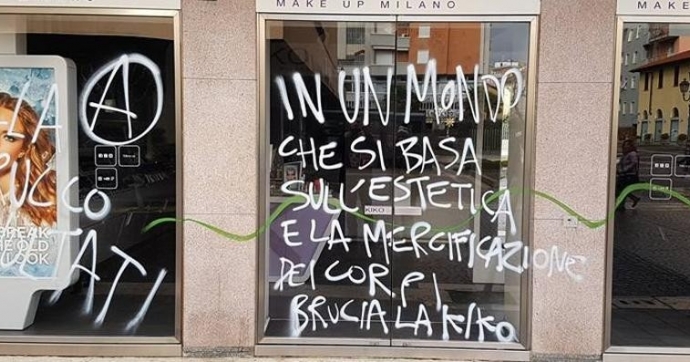 MAKE UP MILANO
MAKE
IN UN MONDO
CHE SI BASA
SULL'ESTETICA
E LA MERCIFICAZIONE
DEI CORPI
BRUCIA LA KIKO
KIKO
A
LA
UCCO
TATI
BREAK
THE OLD
LOOK